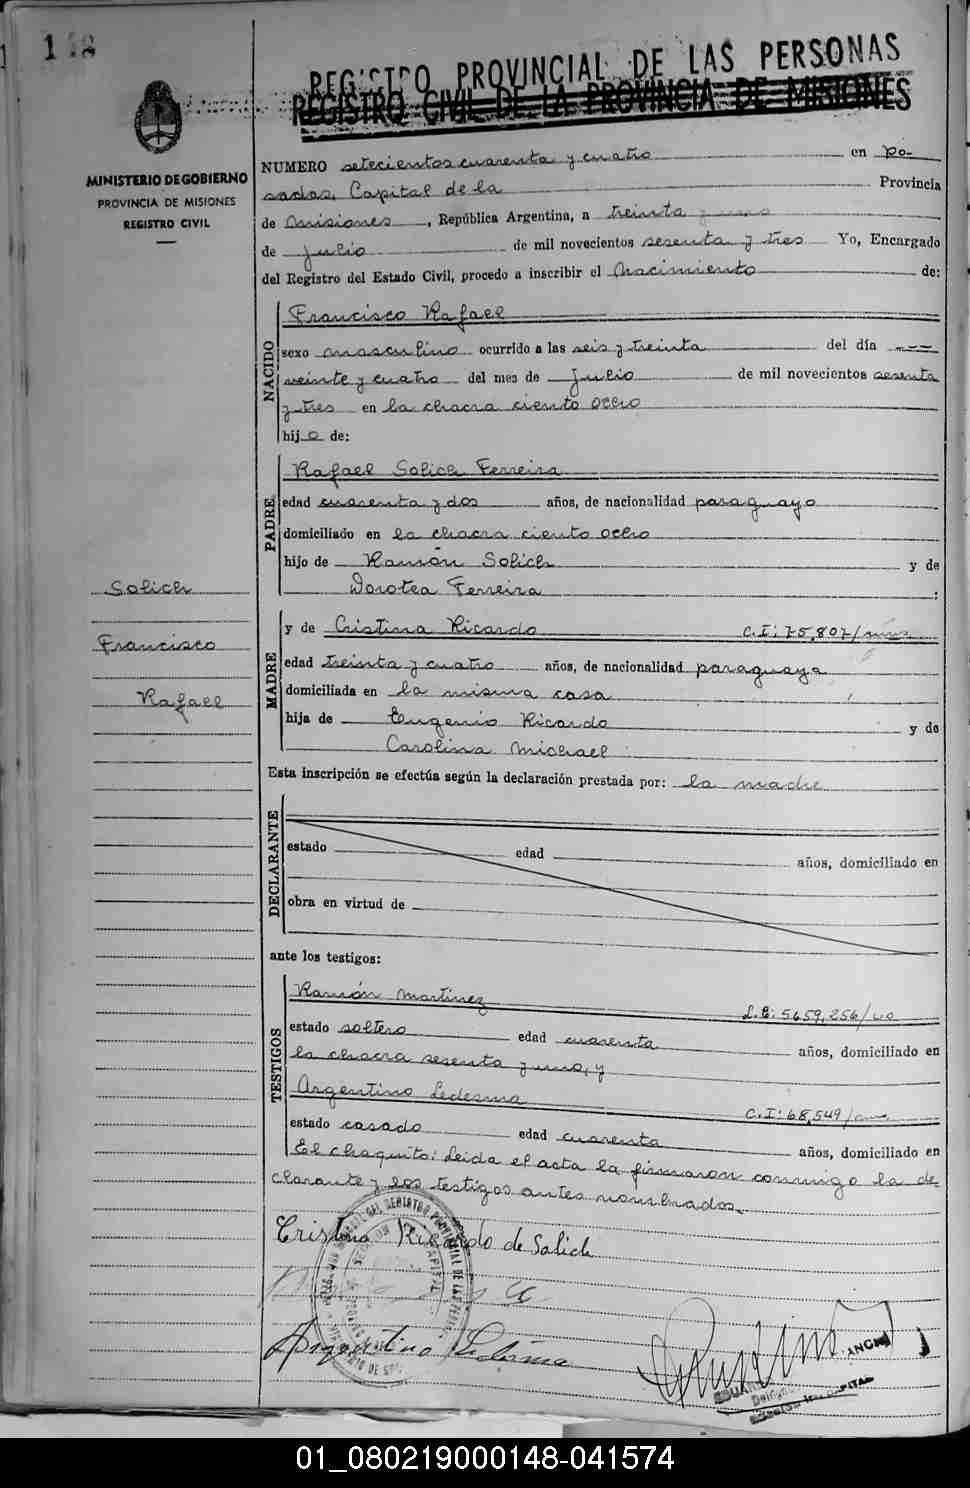 REGISTRO PROVINCIAL DE LAS PERSONAS
REGISTRO CIVIL DE LA PROVINCIA DE MISIONES
MINISTERIO DE GOBIERNO
PROVINCIA DE MISIONES
REGISTRO CIVIL
NUMERO setecientos cuarenta y cuatro en Po-
sadas, Capital de la Provincia
de Misiones, República Argentina, a treinta y uno
de Julio de mil novecientos sesenta y tres Yo, Encargado
del Registro del Estado Civil, procedo a inscribir el nacimiento de:
NACIDO
Francisco Rafael
sexo masculino ocurrido a las seis y treinta del día
veinte y cuatro del mes de Julio de mil novecientos sesenta
y tres en la chacra ciento ocho
hijo de:
PADRE
Rafael Solich Ferreira
edad cuarenta y dos años, de nacionalidad paraguayo
domiciliado en la chacra ciento ocho
hijo de Ramón Solich y de
Dorotea Ferreira
Solich
Francisco
Rafael
MADRE
y de Cristina Ricardo C.I: 75,807/
edad treinta y cuatro años, de nacionalidad paraguaya
domiciliada en la misma casa
hija de Eugenio Ricardo y de
Carolina Michael
Esta inscripción se efectúa según la declaración prestada por: la madre
DECLARANTE
estado edad años, domiciliado en
obra en virtud de
ante los testigos:
TESTIGOS
Ramón Martinez L.E: 5659,256/
estado soltero edad cuarenta años, domiciliado en
la chacra sesenta y uno, y
Argentino Ledesma C.I: 68,549/
estado casado edad cuarenta años, domiciliado en
El chaquito: Leida el acta la firmaron conmigo la de-
clarante y los testigos antes nombrados.
Cristina Ricardo de Solich
Argentino Ledesma
01_080219000148-041574